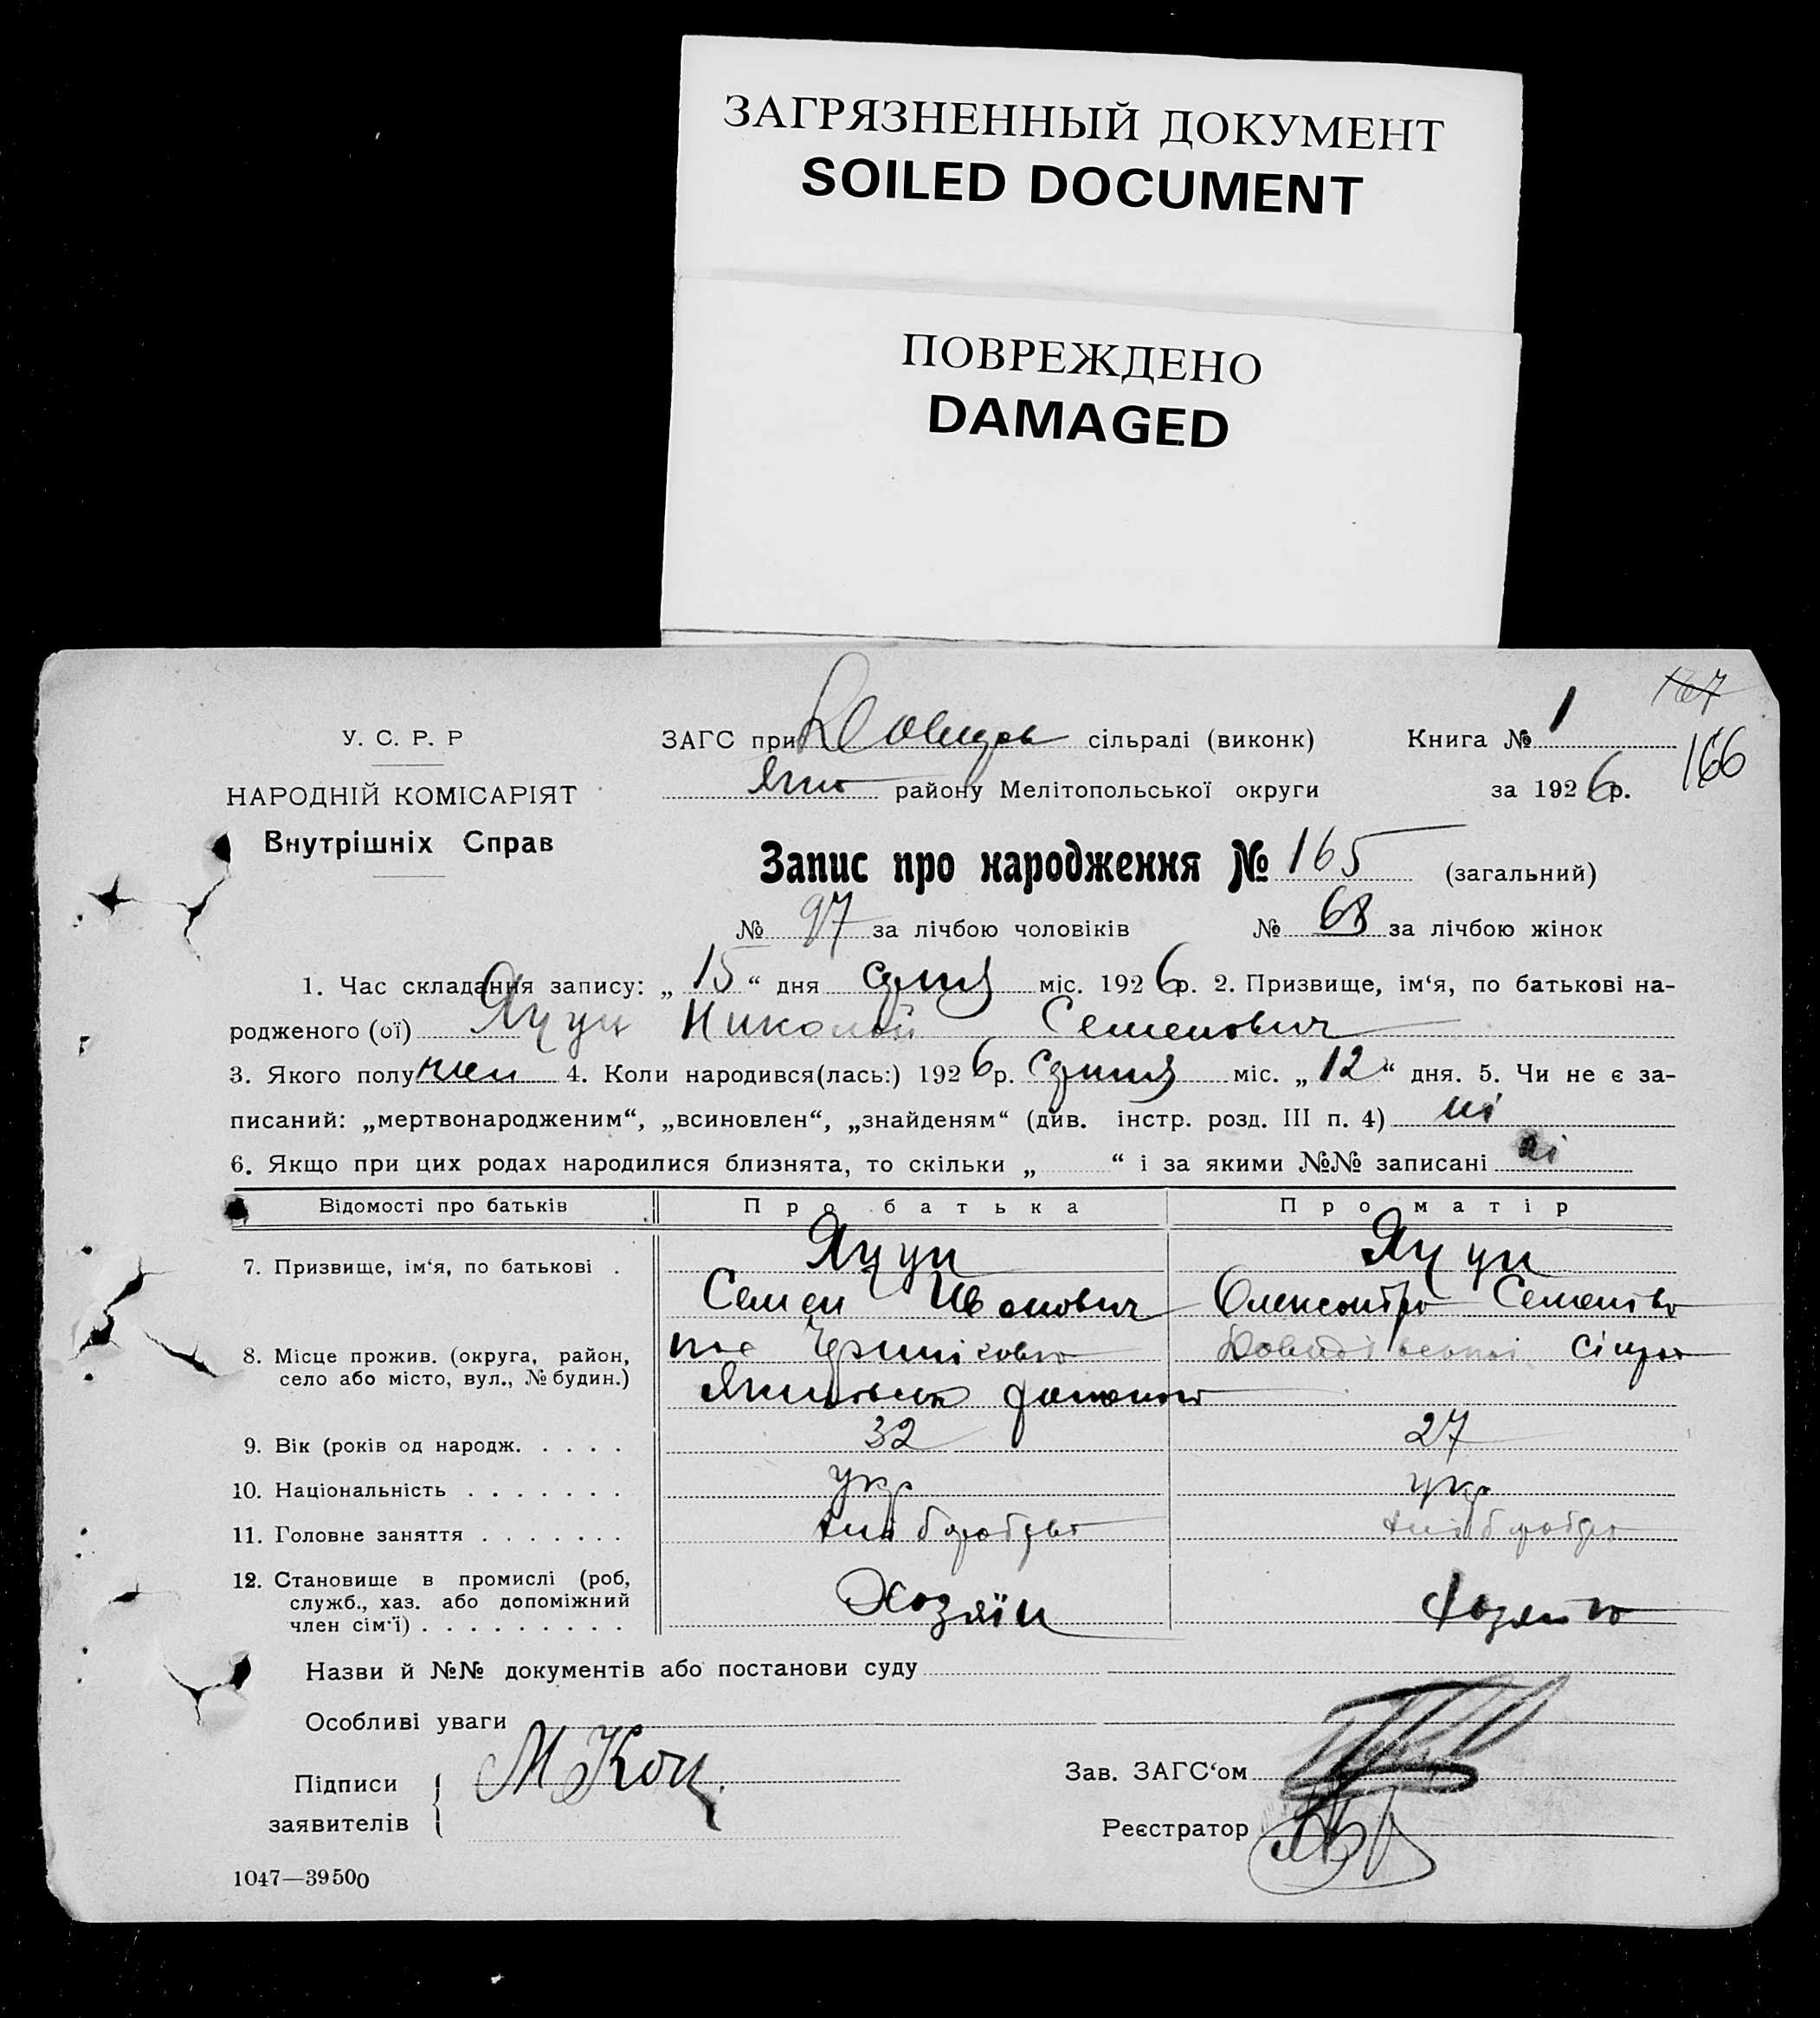 ЗАГРЯЗНЕННЫЙ ДОКУМЕНТ
SOILED DOCUMENT
ПОВРЕЖДЕНО
DAMAGED
167
166
У. С. Р. Р
НАРОДНІЙ КОМІСАРІЯТ
Внутрішніх Справ
ЗАГС при сільраді (виконк) Книга № 1
району Мелітопольської округи за 1926 р.
Запис про народження № 165 (загальний)
№ 97 за лічбою чоловіків № 68 за лічбою жінок
1. Час складання запису: „ 15 “ дня міс. 1926 р. 2. Призвище, ім‘я, по батькові на-
родженого (ої) Яцун Николай Семенович
3. Якого полу 4. Коли народився(лась:) 1926 р. міс. „ 12 “ дня. 5. Чи не є за-
писаний: „мертвонародженим“, „всиновлен“, „знайденям“ (див. інстр. розд. III п. 4) ні
6. Якщо при цих родах народилися близнята, то скільки „ “ і за якими №№ записані ні
Відомості про батьків Про батька Про матір
7. Призвище, ім‘я, по батькові . Яцун Яцун
Семен Иванович Олександра
8. Місце прожив. (округа, район,
село або місто, вул., № будин.)
9. Вік (років од народж. . . . . 32 27
10. Національність . . . . . . . укр укр
11. Головне заняття . . . . . . . хліборобство хліборобство
12. Становище в промислі (роб,
служб., хаз. або допоміжний
член сім‘ї) . . . . . . . . . Хозяїн
Назви й №№ документів або постанови суду
Особливі уваги
Підписи
заявителів
М Коц
Зав. ЗАГС‘ом
Реєстратор
1047—39500